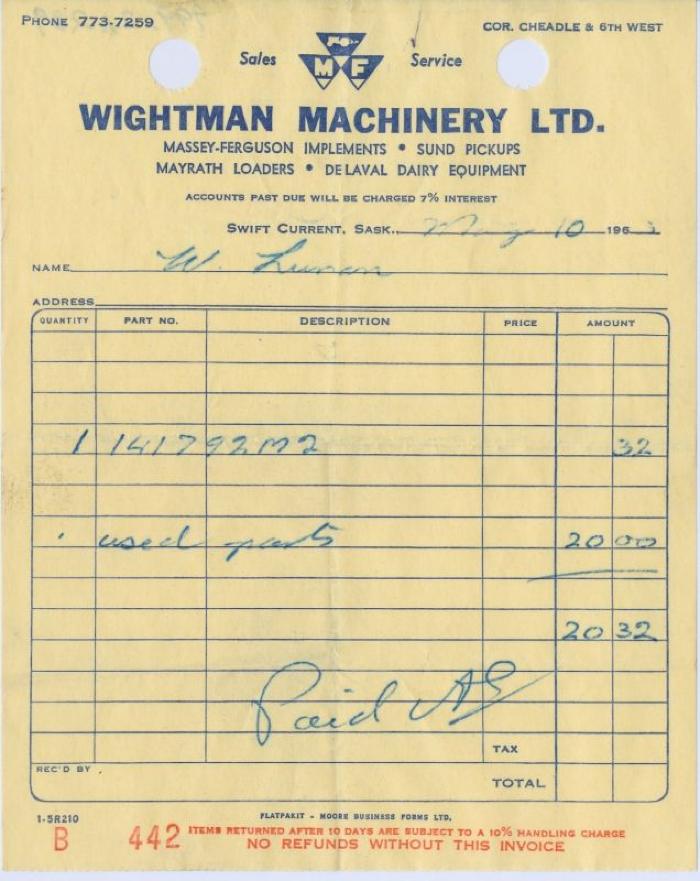 PHONE 773-7259
COR. CHEADLE & 6TH WEST
Sales MF Service
WIGHTMAN MACHINERY LTD.
MASSEY-FERGUSON IMPLEMENTS • SUND PICKUPS
MAYRATH LOADERS • DE LAVAL DAIRY EQUIPMENT
ACCOUNTS PAST DUE WILL BE CHARGED 7% INTEREST
SWIFT CURRENT, SASK., May 10 196
NAME W. Lunan
ADDRESS
QUANTITY PART NO. DESCRIPTION PRICE AMOUNT
1 141792M2 32
used parts 20 00
20 32
Paid AG
TAX
REC'D BY
TOTAL
1-5R210
FLATPAKIT - MOORE BUSINESS FORMS LTD.
B 442 ITEMS RETURNED AFTER 10 DAYS ARE SUBJECT TO A 10% HANDLING CHARGE
NO REFUNDS WITHOUT THIS INVOICE